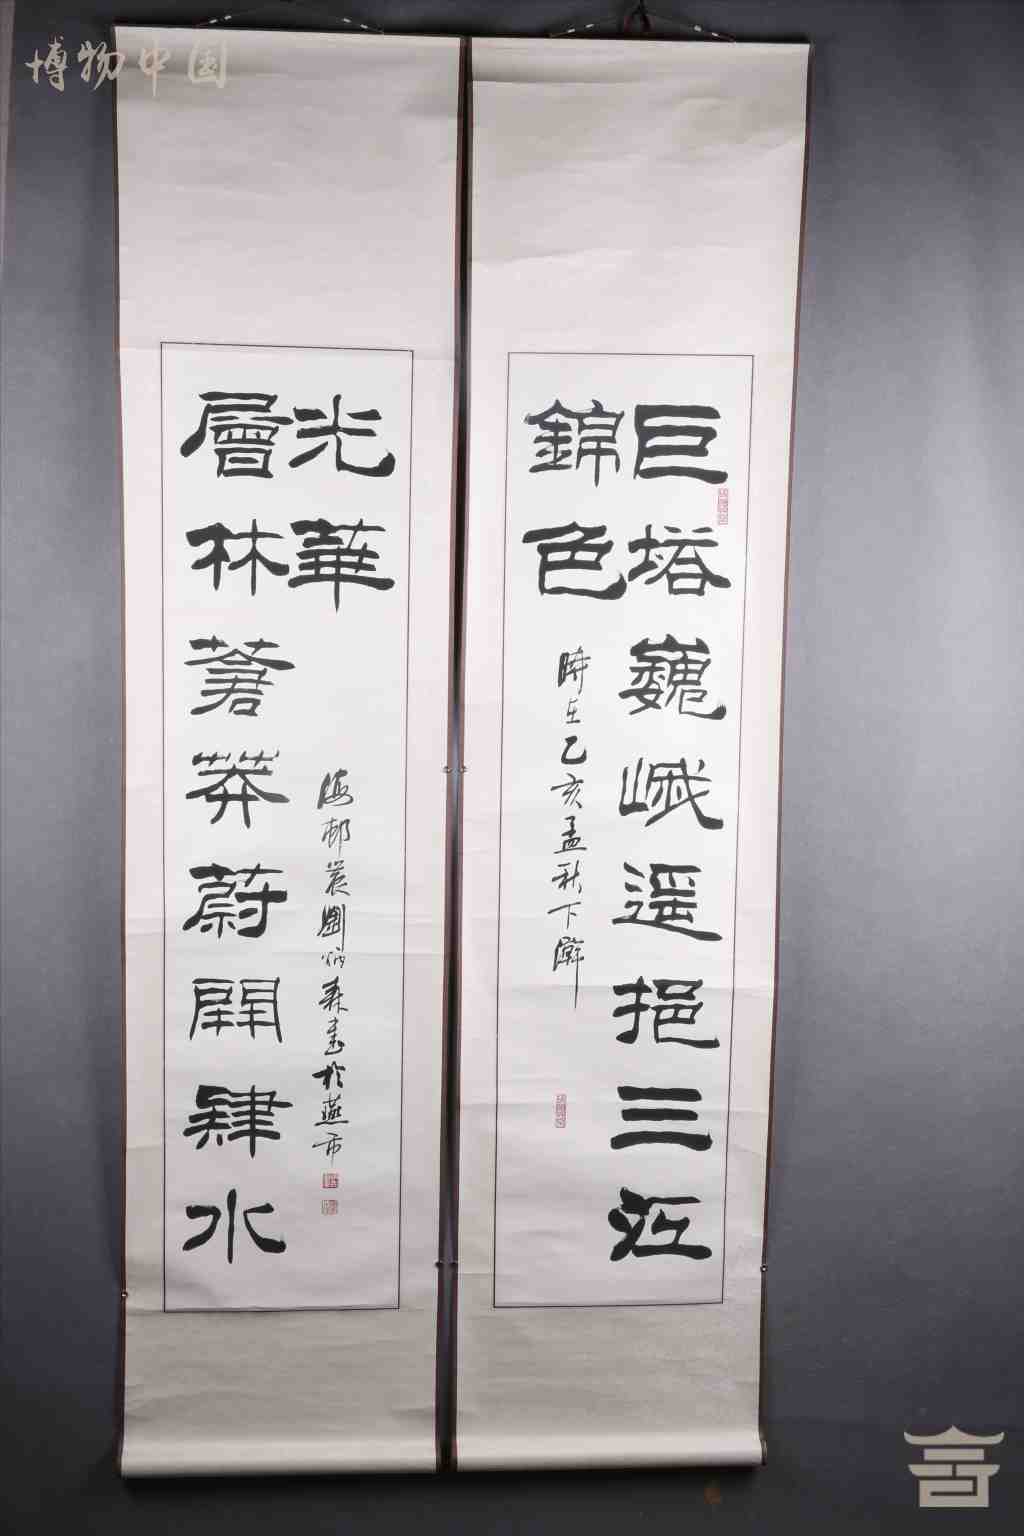 博物中国
巨塔巍峨遥挹三江
錦色
時在乙亥孟秋下澣
層林蒼莽蔚開肆水
光華
海邨農劉炳森書於燕市